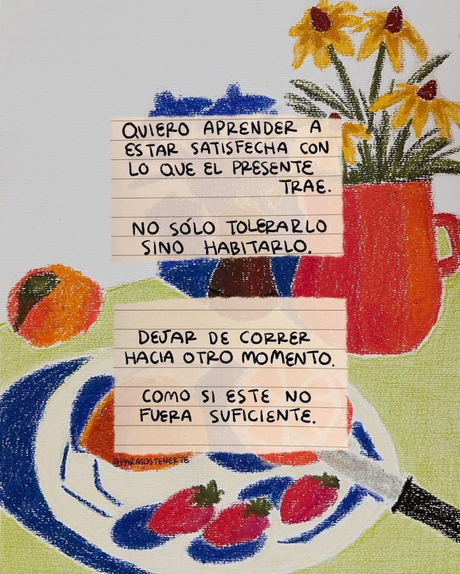 QUIERO APRENDER A
ESTAR SATISFECHA CON
LO QUE EL PRESENTE
TRAE.
NO SÓLO TOLERARLO
SINO HABITARLO.
DEJAR DE CORRER
HACIA OTRO MOMENTO.
COMO SI ESTE NO
FUERA SUFICIENTE.
@PARASOSTENERTE